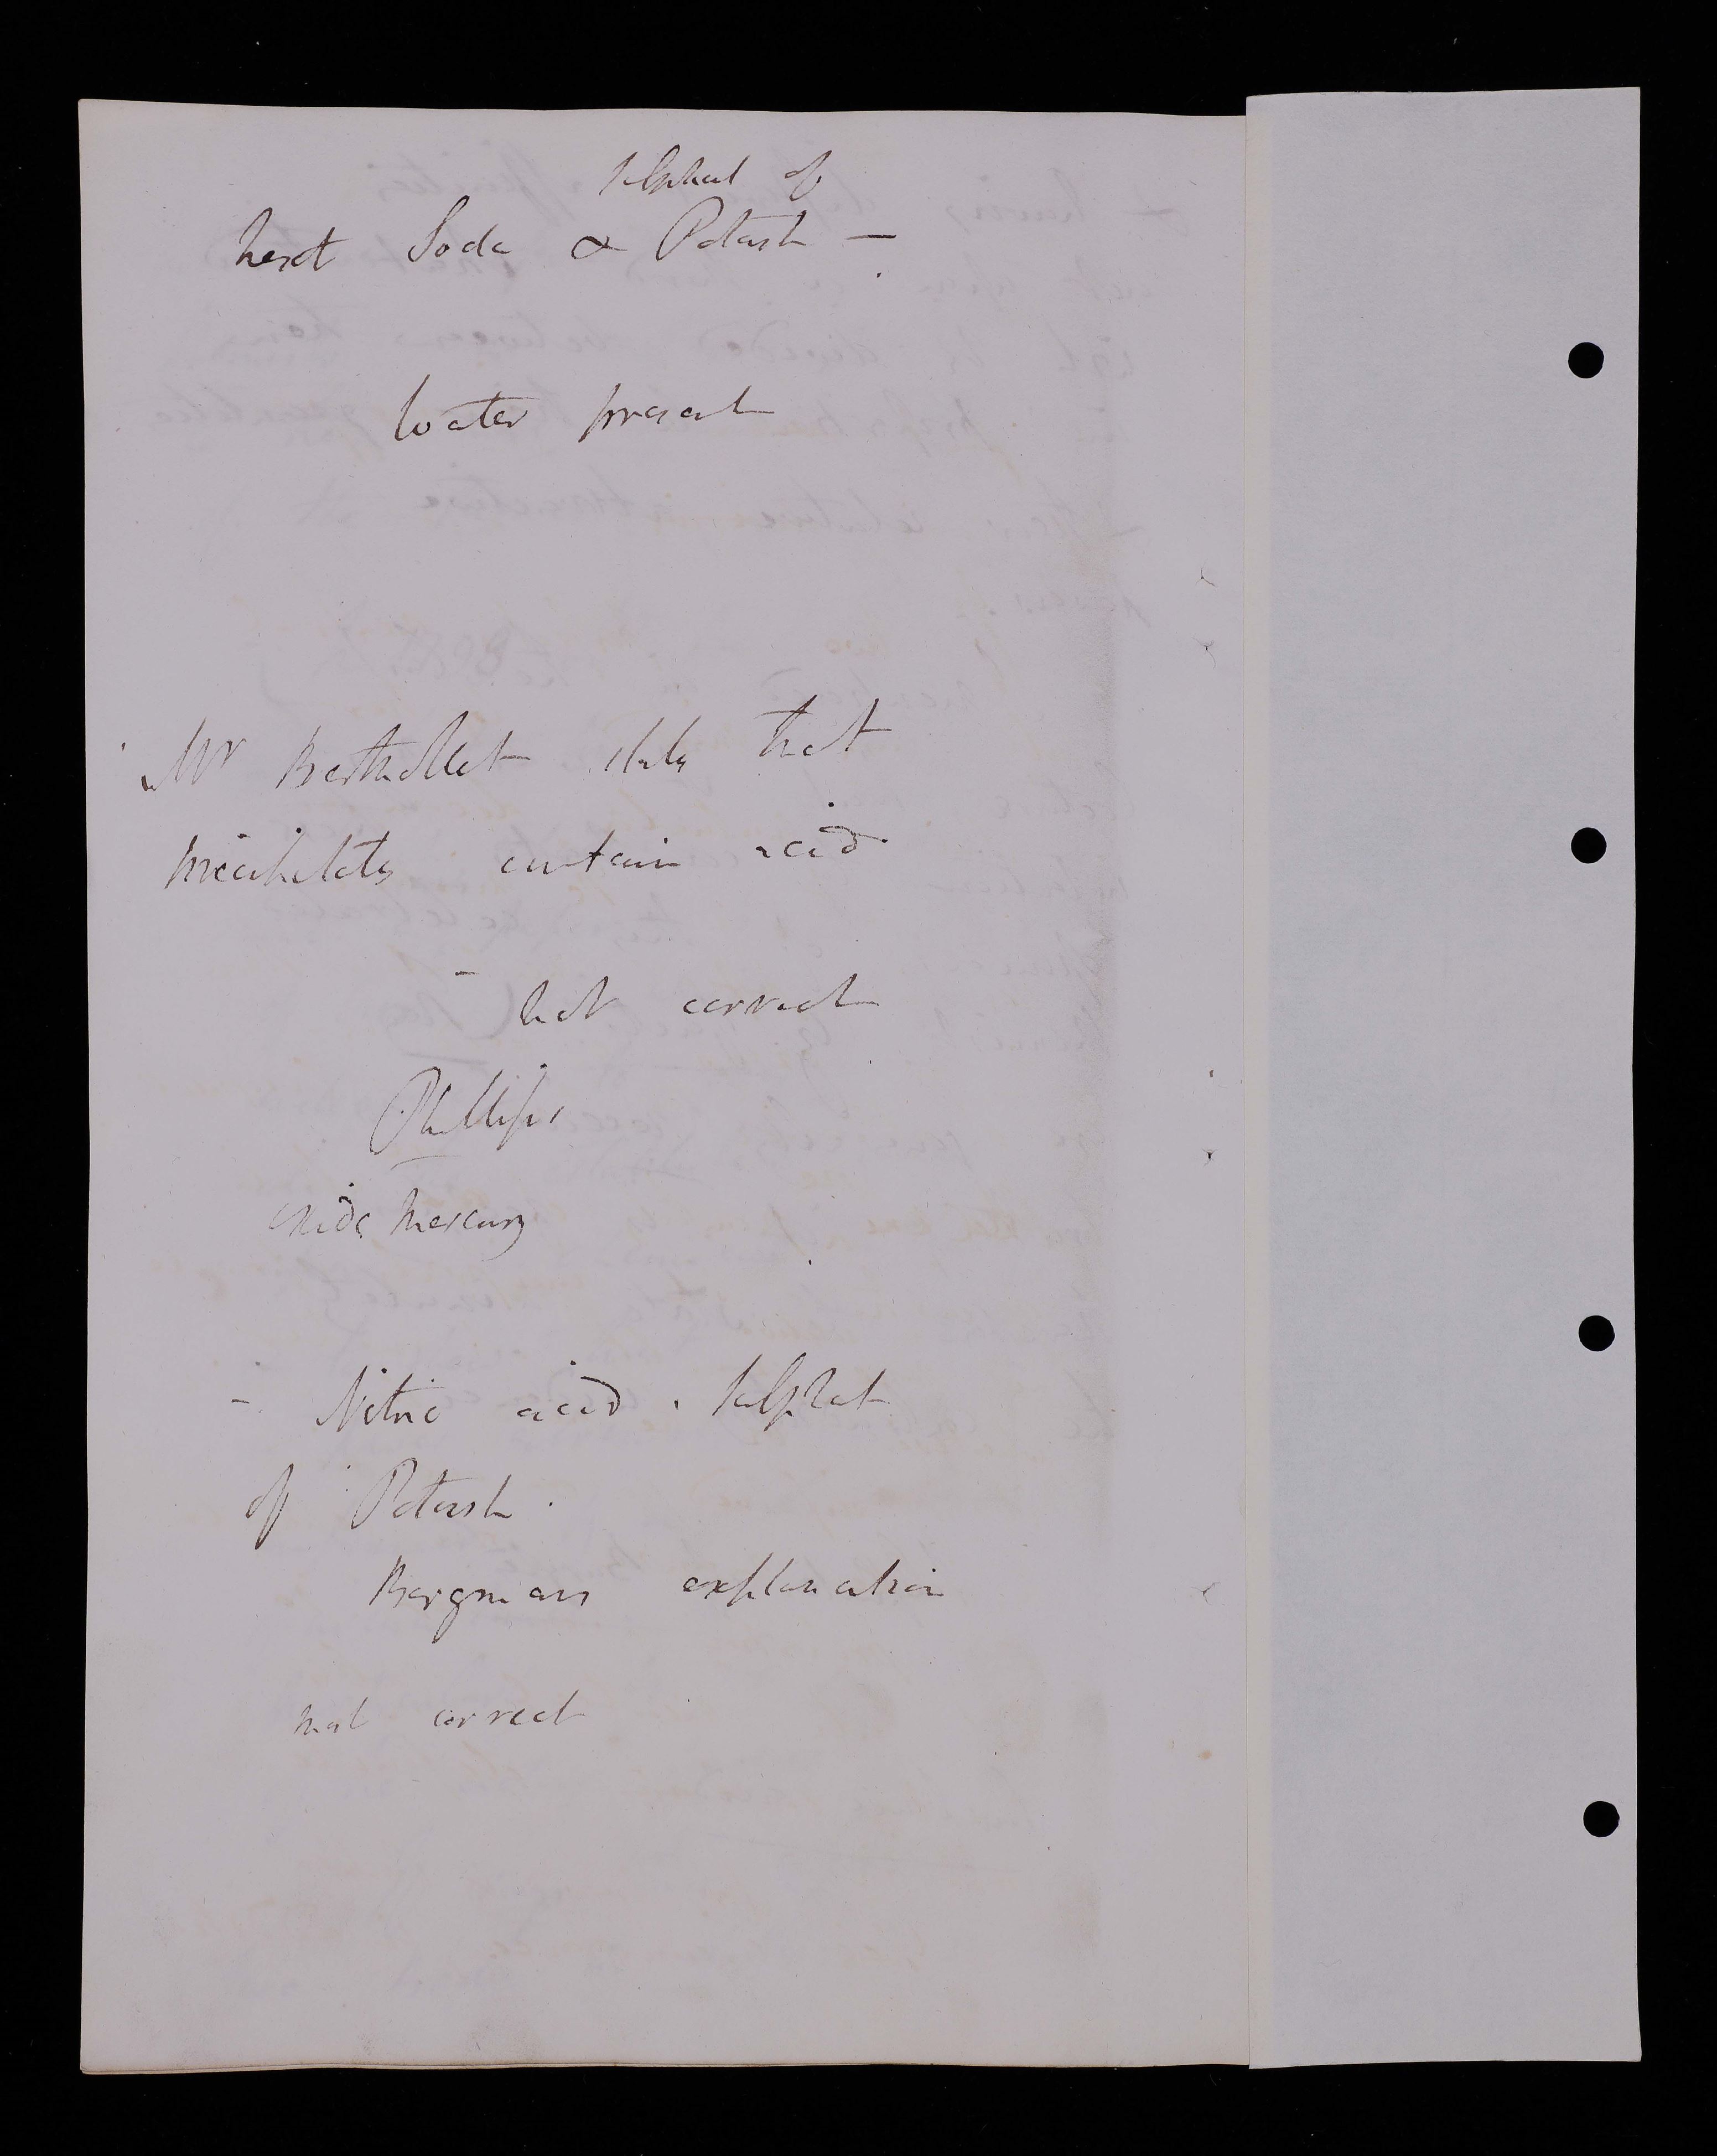 Sulphat of
next Soda & Potash —
Water present
Mr Berthollet states that
precipitates contain acid
- not correct
Phillips
oxide Mercury
- Nitric acid. Sulphat
of Potash.
Bergmans explanation
not correct